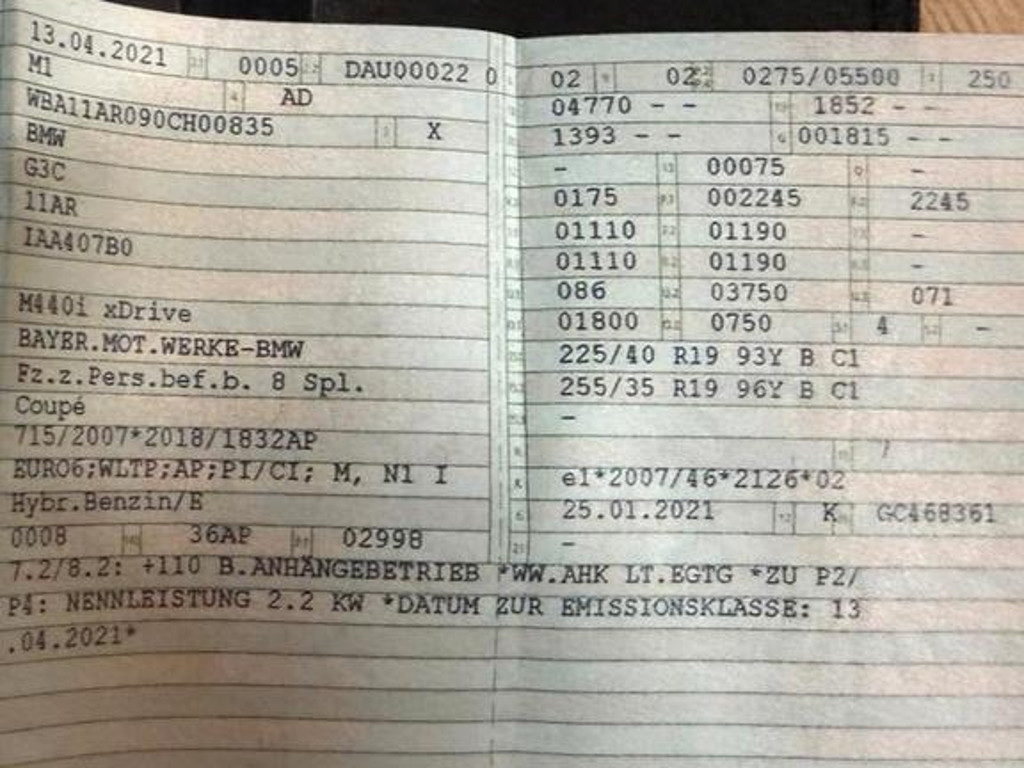 13.04.2021 0005 DAU00022 0
M1 AD
WBA11AR090CH00835 X
BMW
G3C
11AR
IAA407B0
M440i xDrive
BAYER.MOT.WERKE-BMW
Fz.z.Pers.bef.b. 8 Spl.
Coupé
715/2007*2018/1832AP
EURO6;WLTP;AP;PI/CI; M, N1 I
Hybr.Benzin/E
0008 36AP 02998
02 02 0275/05500 250
04770 - - 1852 - -
1393 - - 001815 - -
- 00075 -
0175 002245 2245
01110 01190 -
01110 01190 -
086 03750 071
01800 0750 4 -
225/40 R19 93Y B C1
255/35 R19 96Y B C1
-
7
e1*2007/46*2126*02
25.01.2021 K GC468361
-
7.2/8.2: +110 B.ANHÄNGEBETRIEB *WW.AHK LT.EGTG *ZU P2/
P4: NENNLEISTUNG 2.2 KW *DATUM ZUR EMISSIONSKLASSE: 13
.04.2021*